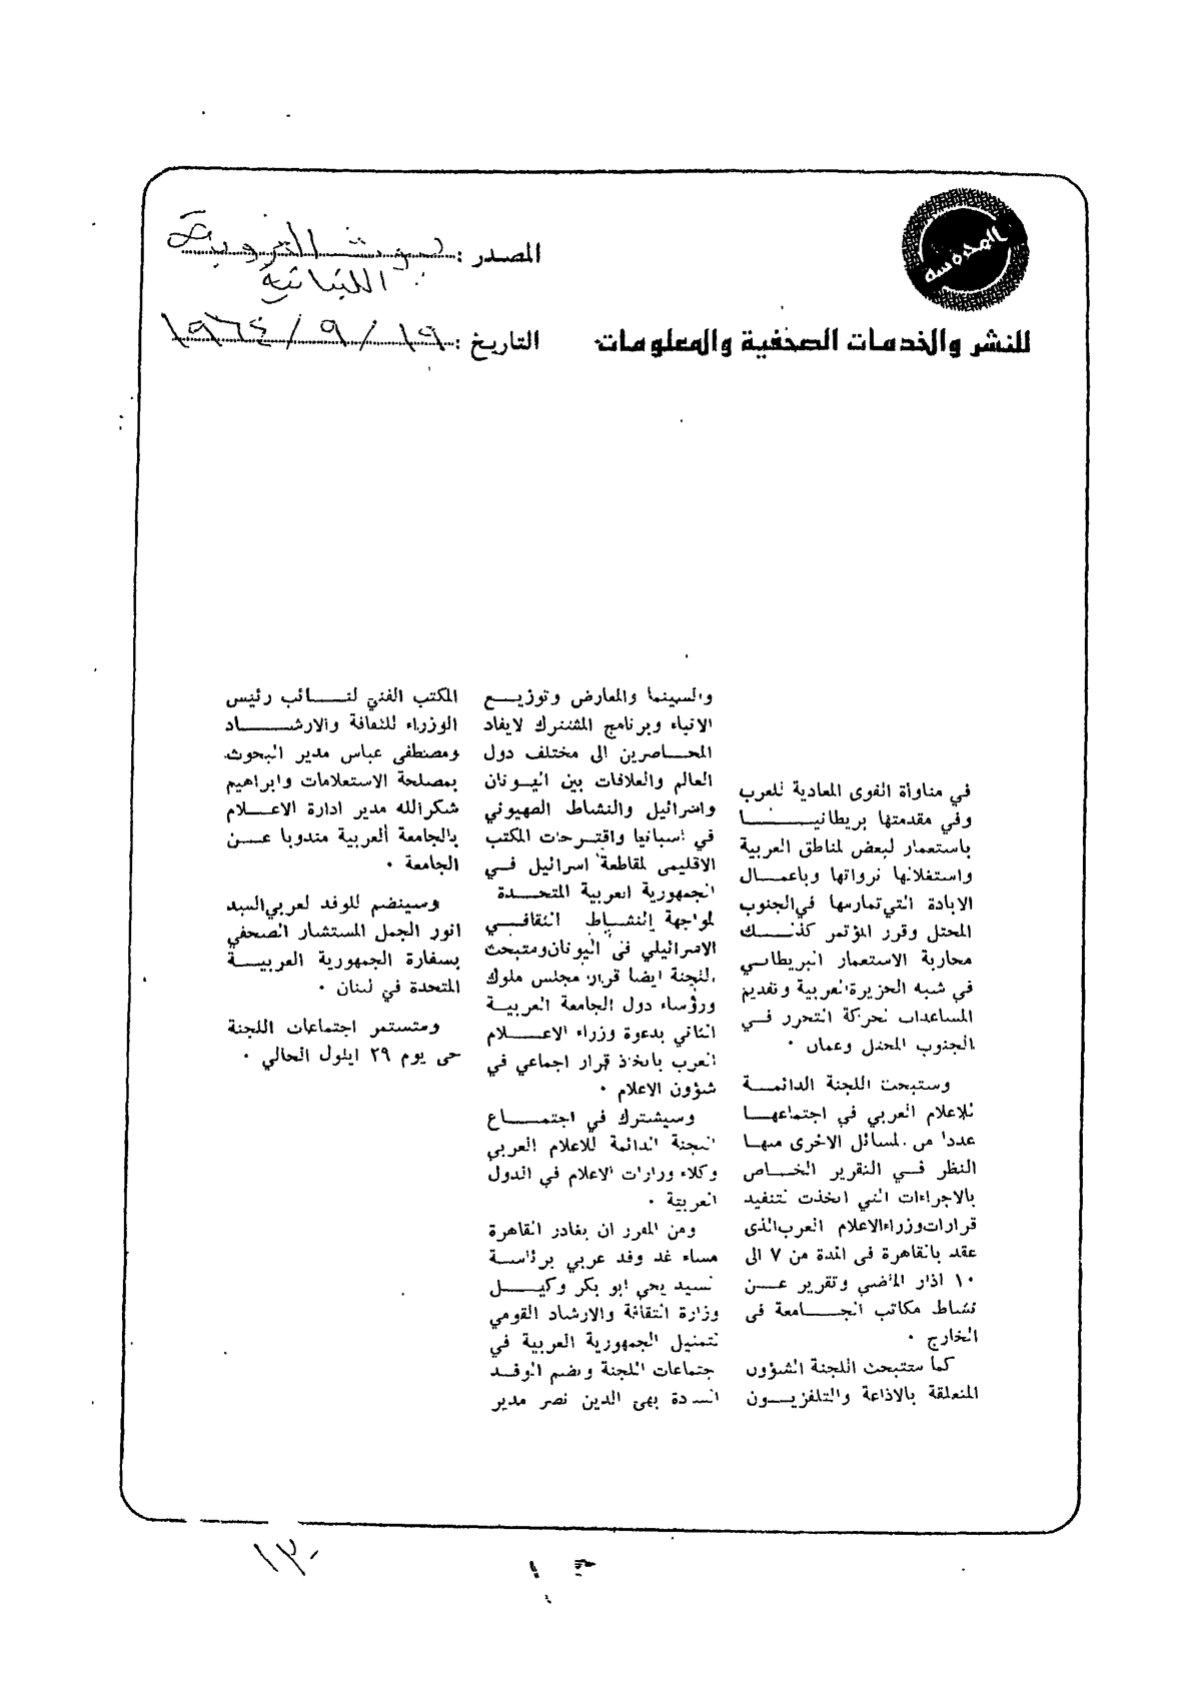 المدرسة
للنشر والخدمات الصحفية والمعلومات
المصدر : العروبة
اللبنانية
التاريخ : ١٩ / ٩ / ١٩٦٤
في مناوأة القوى المعادية للعرب
وفي مقدمتها بريطانيا
باستعمار لبعض لمناطق العربية
واستغلالها ثرواتها وباعمال
الابادة التي تمارسها في الجنوب
المحتل وقرر المؤتمر كذلك
محاربة الاستعمار البريطاني
في شبه الجزيرة العربية وتقديم
المساعدات لحركة التحرر في
الجنوب المحتل وعمان ٠
وستبحث اللجنة الدائمة
للاعلام العربي في اجتماعها
عددا من لمسائل الاخرى منها
النظر في التقرير الخاص
بالاجراءات التي اتخذت لتنفيذ
قرارات وزراء الاعلام العرب الذى
عقد بالقاهرة فى المدة من ٧ الى
١٠ اذار الماضي وتقرير عن
نشاط مكاتب الجامعة فى
الخارج ٠
كما ستبحث اللجنة الشؤون
المتعلقة بالاذاعة والتلفزيون
والسينما والمعارض وتوزيع
الانباء وبرنامج المشترك لايفاد
المحاضرين الى مختلف دول
العالم والعلاقات بين اليونان
واسرائيل والنشاط الصهيوني
في اسبانيا واقترحات المكتب
الاقليمى لمقاطعة اسرائيل في
الجمهورية العربية المتحدة
لمواجهة النشاط الثقافي
الاسرائيلي فى اليونان وستبحث
للجنة ايضا قرار مجلس ملوك
ورؤساء دول الجامعة العربية
الثاني بدعوة وزراء الاعلام
العرب باتخاذ قرار اجماعي في
شؤون الاعلام ٠
وسيشترك في اجتماع
اللجنة الدائمة للاعلام العربي
وكلاء وزارات الاعلام في الدول
العربية ٠
ومن المقرر ان يغادر القاهرة
مساء غد وفد عربي برئاسة
لسيد يحي ابو بكر وكيل
وزارة الثقافة والارشاد القومي
لتمثيل الجمهورية العربية في
جتماعات اللجنة ويضم الوفد
السادة بهي الدين نصر مدير
المكتب الفني لنائب رئيس
الوزراء للثقافة والارشاد
ومصطفى عباس مدير البحوث
بمصلحة الاستعلامات وابراهيم
شكرالله مدير ادارة الاعلام
بالجامعة العربية مندوبا عن
الجامعة ٠
وسينضم للوفد لعربي السيد
انور الجمل المستشار الصحفي
بسفارة الجمهورية العربية
المتحدة في لبنان ٠
وستستمر اجتماعات اللجنة
حتى يوم ٢٩ ايلول الحالي ٠
١٣٠